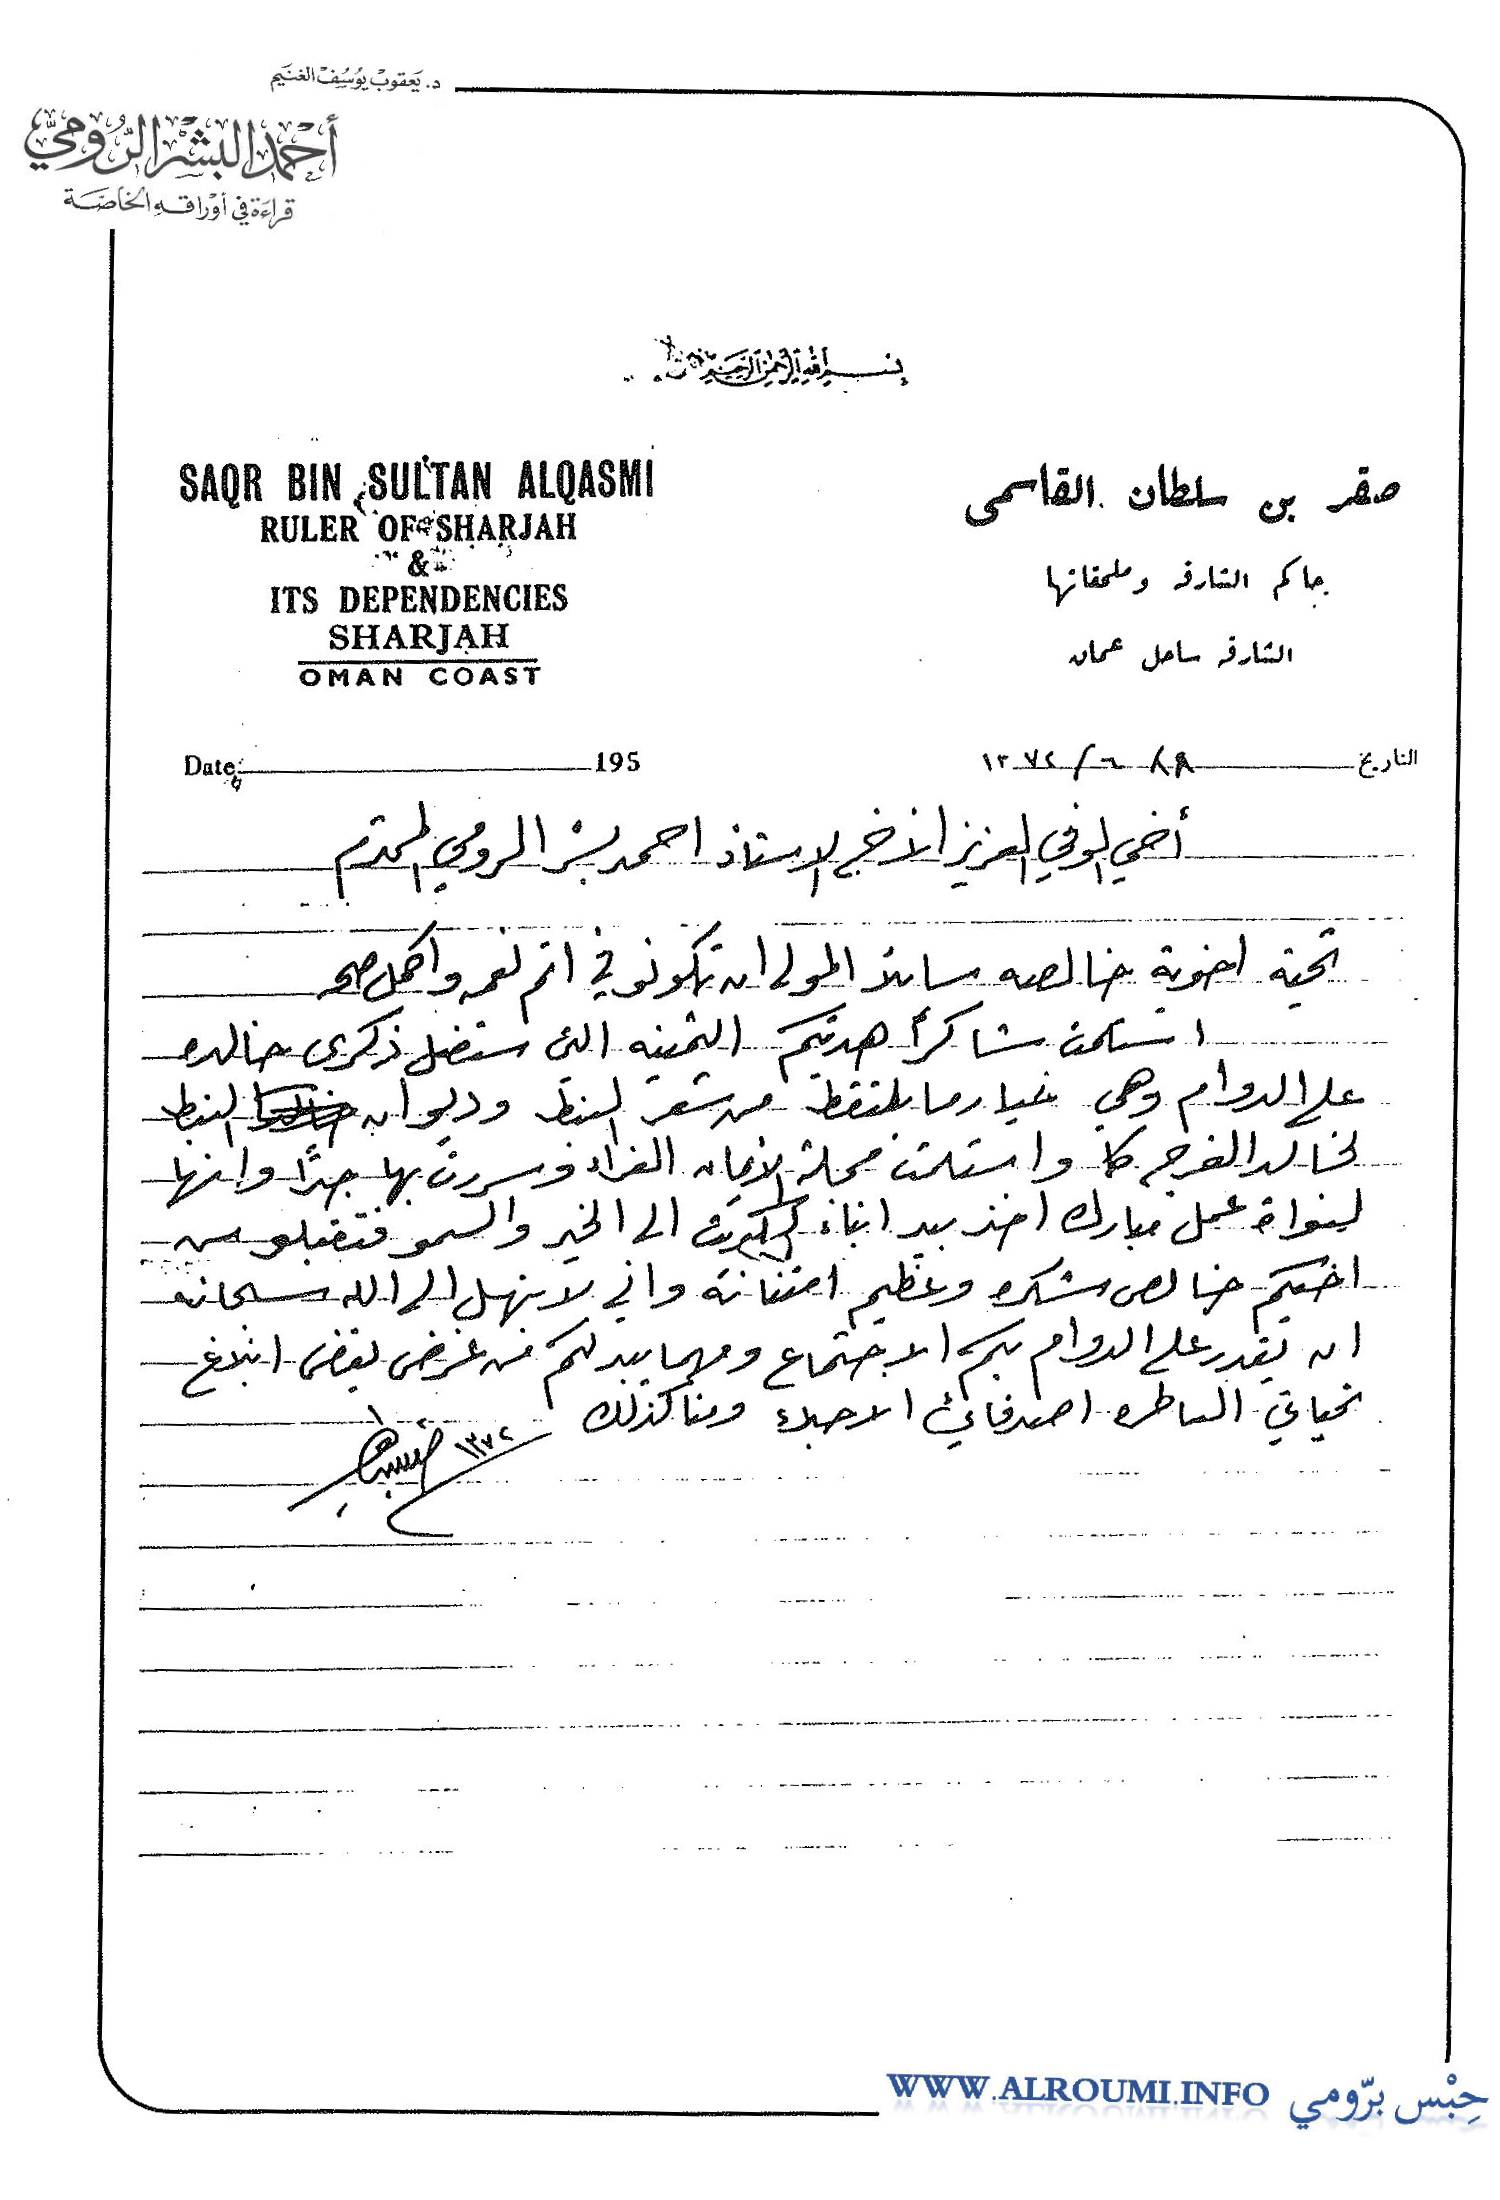 د. يَعقوبْ يوُسُفْ الغنيَم
أحمَد البشْر الرّوُمَيّ
قراءة في أوْراقه الخاصّة
بسم الله الرحمن الرحيم
SAQR BIN SULTAN ALQASMI
RULER OF SHARJAH
&
ITS DEPENDENCIES
SHARJAH
OMAN COAST
صقر بن سلطان القاسمى
حاكم الشارقه وملحقاتها
الشارقه ساحل عمان
Date 195
التاريخ ٢٨ / ٦ / ١٣٧٢
أخي الوفي العزيز الأخ الاستاذ احمد بشر الرومي المحترم
تحية اخوية خالصه سائلا المولى ان تكونو في اتم نعمه واكمل صحه
استلمت شاكراً هديتكم الثمينه التي ستضل ذكرى خالده
على الدوام وهي خيار ما يلتقط من شعر النبط وديوان النبط
لخالد الفرج كما واستلمت مجلة الايمان الغراء وسررت بها جداً وانها
لنواة عمل مبارك اخذ بيد ابناء الكويت الى الخير والسمو فتقبلو من
اخيكم خالص شكره وعظيم امتنانه واني لابتهل الى الله سبحانه
ان يقدر على الدوام بكم الاجتماع ومهما يبدلكم من غرض يقض ابلاغ
تحياتي العاطره اصدقائي الاحباء ومنا كذلك
١٣٧٢
WWW.ALROUMI.INFO حِبْس برّومي